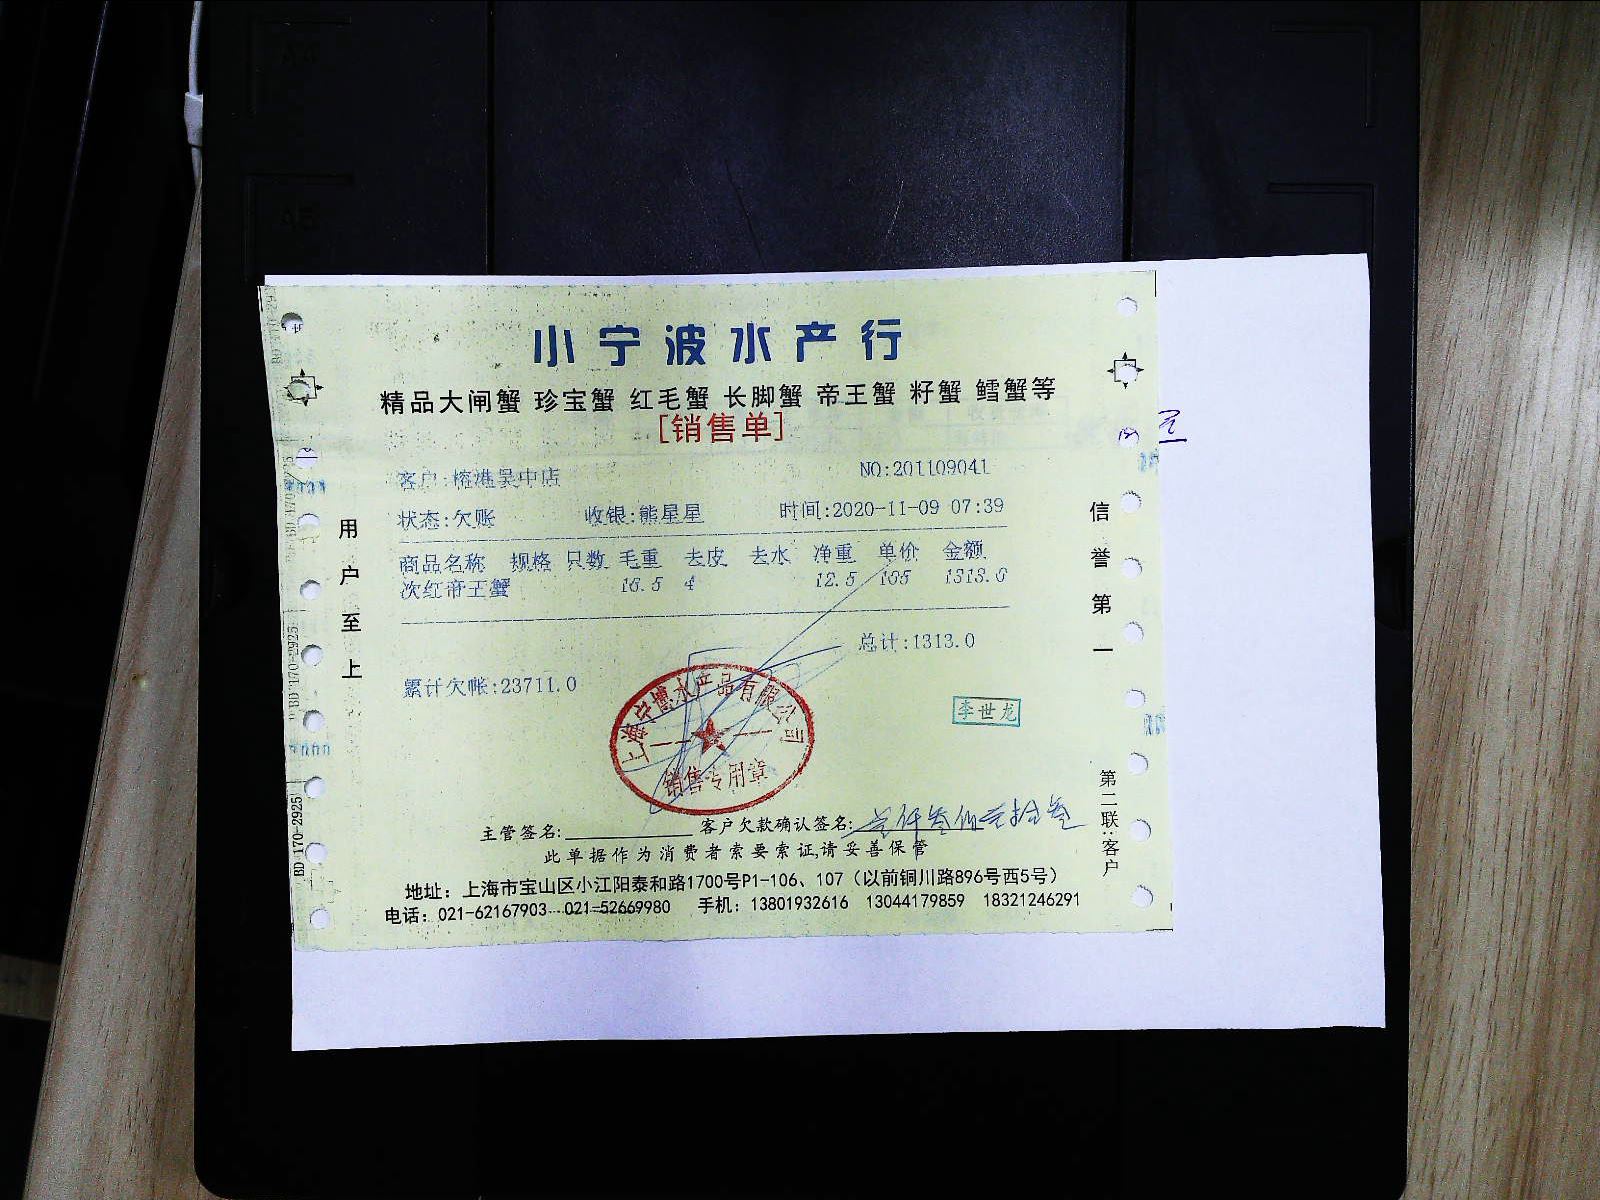 小宁波水产行
精品大闸蟹 珍宝蟹 红毛蟹 长脚蟹 帝王蟹 籽蟹 鳕蟹等
[销售单]
客户:榕港吴中店 NO:201109041
状态:欠账 收银:熊星星 时间:2020-11-09 07:39
商品名称 规格 只数 毛重 去皮 去水 净重 单价 金额
次红帝王蟹 16.5 4 12.5 105 1313.0
总计:1313.0
累计欠帐:23711.0
上海宁博水产品有限公司
销售专用章
李世龙
主管签名: 客户欠款确认签名: 壹仟叁佰壹拾叁
此单据作为消费者索要索证,请妥善保管
地址：上海市宝山区小江阳泰和路1700号P1-106、107（以前铜川路896号西5号）
电话：021-62167903 021-52669980 手机：13801932616 13044179859 18321246291
用户至上
信誉第一
第二联:客户
BD 170-2925
BD 170-2925